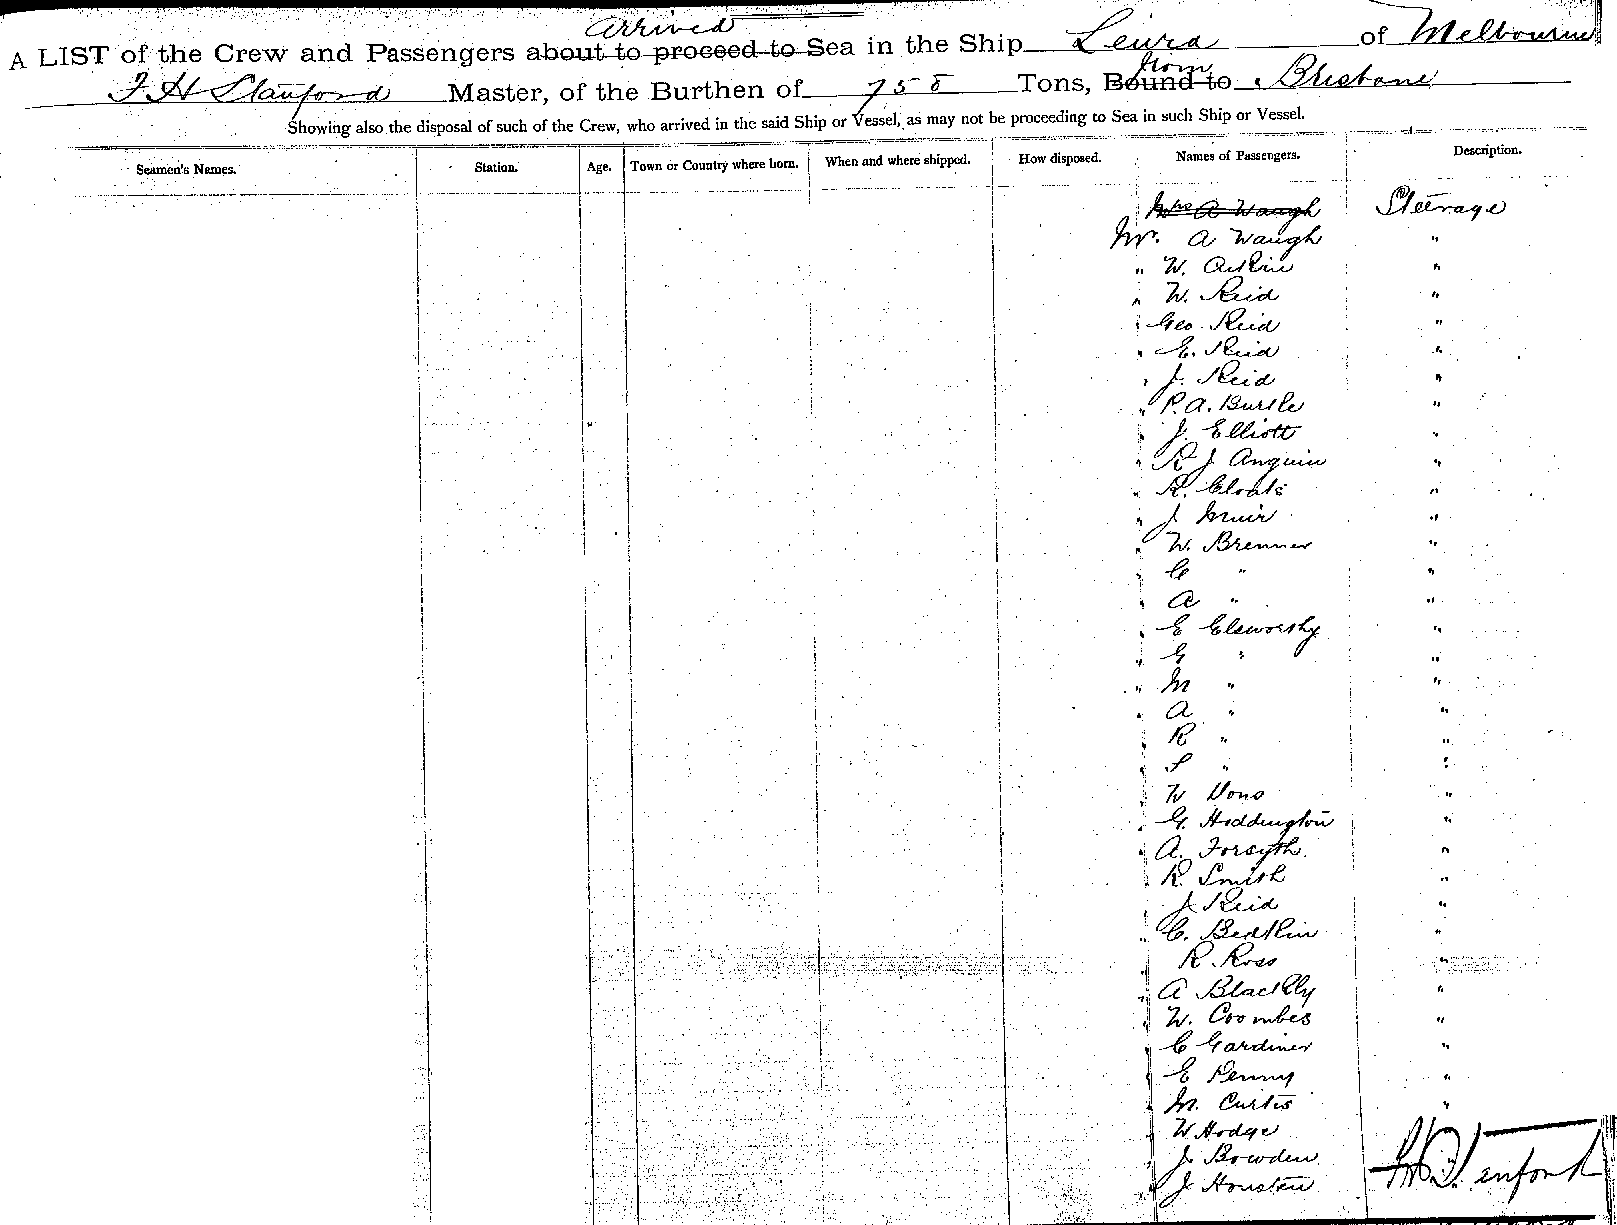 Arrived
A LIST of the Crew and Passengers about to proceed to Sea in the Ship Leura of Melbourne
from
F H Stanford Master, of the Burthen of 758 Tons, Bound to Brisbane
Showing also the disposal of such of the Crew, who arrived in the said Ship or Vessel, as may not be proceeding to Sea in such Ship or Vessel.
Seamen's Names. Station. Age. Town or Country where born. When and where shipped. How disposed. Names of Passengers. Description.
Mrs A Waugh Steerage
Mr. A Waugh "
" W. "
" W. Reid "
" Geo Reid "
" E. Reid "
" J. Reid "
" P. A. "
" J. Elliott "
" R J Anguin "
" R. "
" J Muir "
" W. Brenner "
" C " "
" A " "
" E Elsworthy "
" G " "
" M " "
" A " "
" R " "
" S " "
" W "
" G. Hoddington "
" A. Forsyth "
" R. Smith "
" J Reid "
" C. "
" R. Ross "
" A Blackly "
" W. Coombes "
" C Gardiner "
" E Penny "
" M. Curtis "
" W Hodge
" J. Bowden
" J Houston